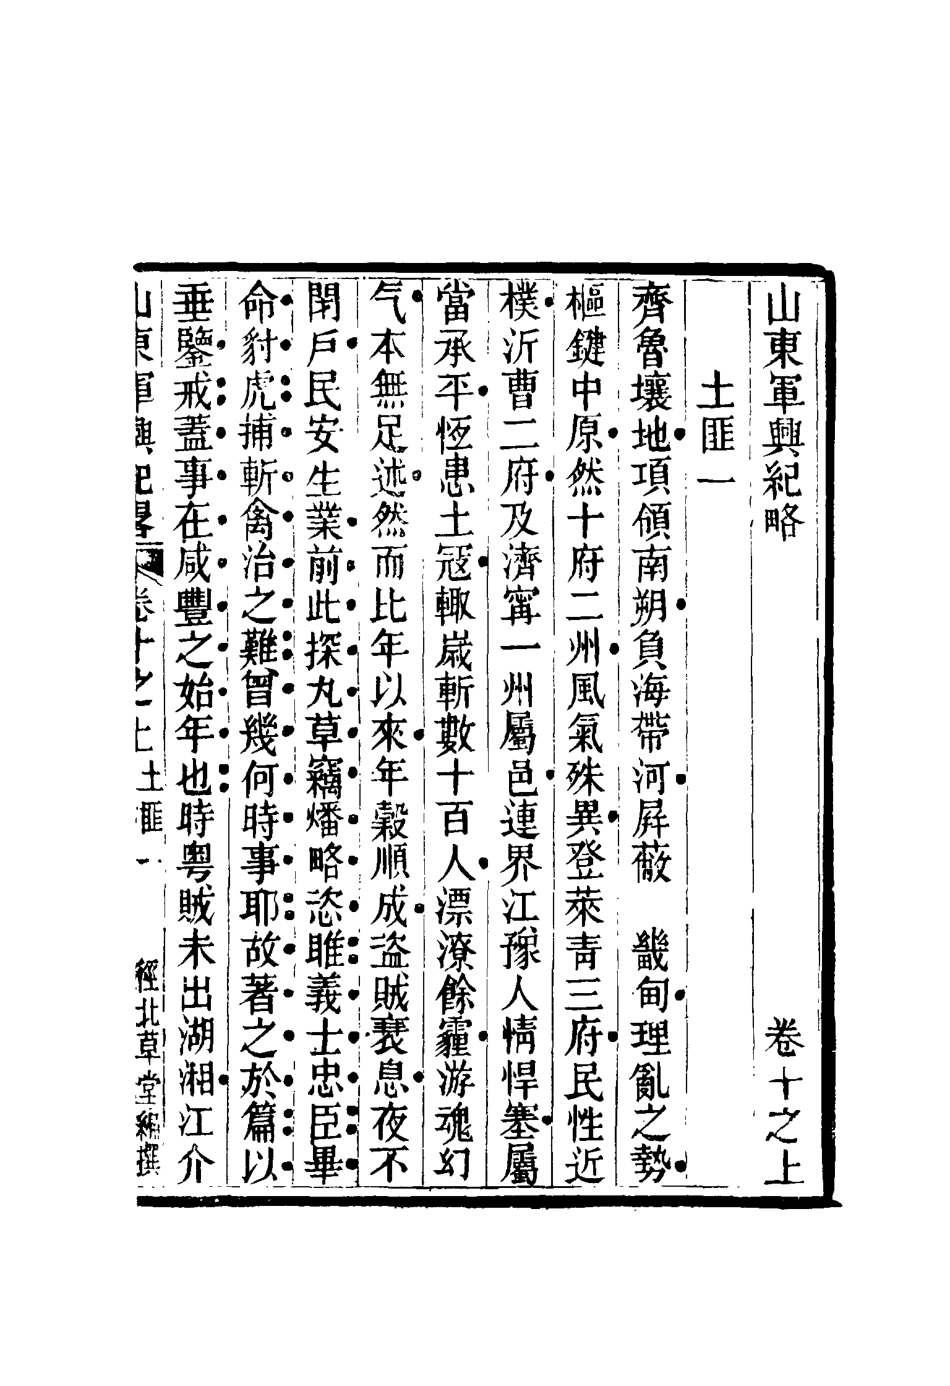 山東軍興紀略　卷十之上
土匪一
齊魯壤地項領南朔負海帶河屏蔽　畿甸理亂之勢
樞鍵中原然十府二州風氣殊異登萊青三府民性近
樸沂曹二府及濟甯一州屬邑連界江豫人情悍塞屬
當承平恆患土寇輙嵗斬數十百人漂潦餘霾游魂幻
气本無足述然而比年以來年穀順成盜賊衰息夜不
閉戶民安生業前此探丸草竊燔略恣睢義士忠臣畢
命豺虎捕斬禽治之難曾幾何時事耶故著之於篇以
垂鑒戒蓋事在咸豐之始年也時粵賊未出湖湘江介
山東軍興紀畧　卷十之上　土匪一　經北草堂編撰